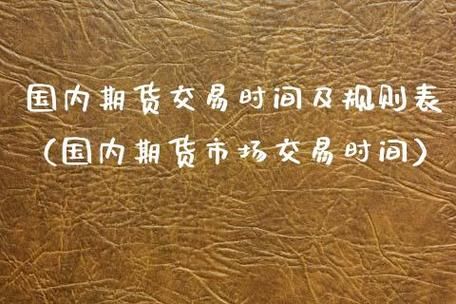 国内期货交易时间及规则表
(国内期货市场交易时间)